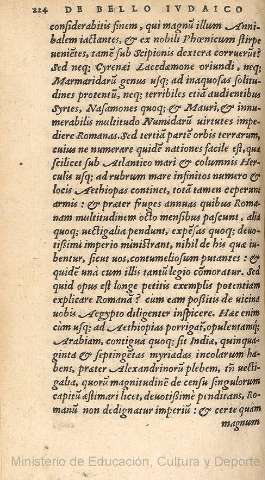 224 DE BELLO IVDAICO
considerabitis finem, qui magnũ illum Anni-
balem iactantes, & ex nobili Phœnicum stirpe
veniẽtes, tamẽ sub Scipionis dextera corruerũt?
Sed neq; Cyrenæi Lacedæmone oriundi, neq;
Marmaridarũ genus usq; ad inaquosas solitu-
dines protentũ, neq; terribiles etiã audientibus
Syrtes, Nasamones quoq; & Mauri, & in-
numerabilis multitudo Numidarũ virtutes impe-
diere Romanas. Sed tertiã partẽ orbis terrarum,
cuius ne numerare quidẽ nationes facile est, quæ
scilicet sub Atlantico mari & columnis Her-
culis usq; ad rubrum mare infinitos numero &
locis Aethiopas continet, totã tamen ceperunt
armis: & præter fruges annuas quibus Roma-
nam multitudinem octo mensibus pascunt, alia
quoq; vectigalia pendunt, expẽsas quoq; deuo-
tissimi imperio ministrant, nihil de his quæ iu-
bentur, sicut uos, contumeliosum putantes: &
quidẽ una cum illis tantũ legio cõmoratur. Sed
quid opus est longe petitis exemplis potentiam
explicare Romanã? cum eam positis de vicina
uobis Aegypto diligenter inspicere. Hæc enim
cùm usq; ad Aethiopias porrigat, opulentamq;
Arabiam, contigua quoq; sit Indiæ, quinqua-
gintа & septingẽtas myriadas incolarum ha-
bens, præter Alexandrinorũ plebem, ñ vecti-
galia, quorũ magnitudinẽ de censu singulorum
capitũ æstimari licet, deuotissimè penditans, Ro-
manũ non dedignatur imperiũ: & certe quàm
magnum
Ministerio de Educación, Cultura y Deporte